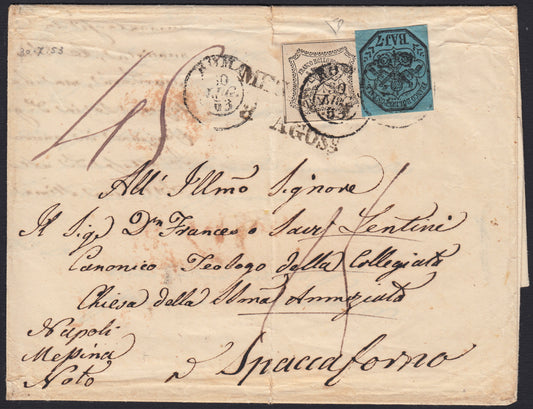 30-7-53
45
ROMA
30
LUG
53
MES
AGOS
FRANCO BOLLO
BAJ 7
All' Illmo Signore
Il Sig.r D.n Francesco Savr Lentini
Canonico Teologo della Collegiata
Chiesa della SSma Annziata
Napoli
Messina
Noto
Spaccaforno